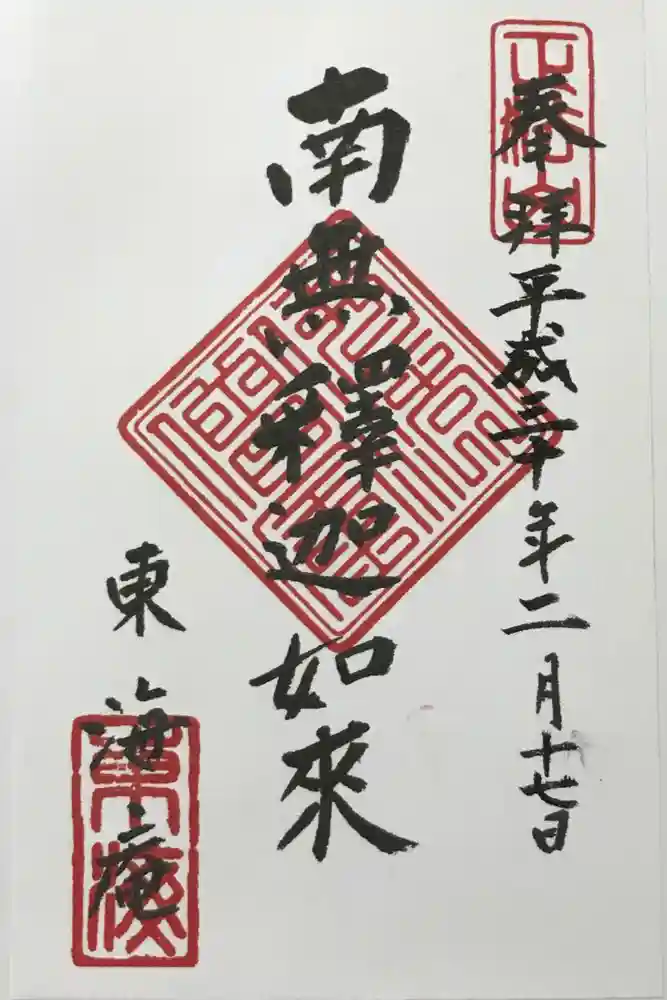 奉拜平成三十年二月十七日
南無釋迦如來
東海庵